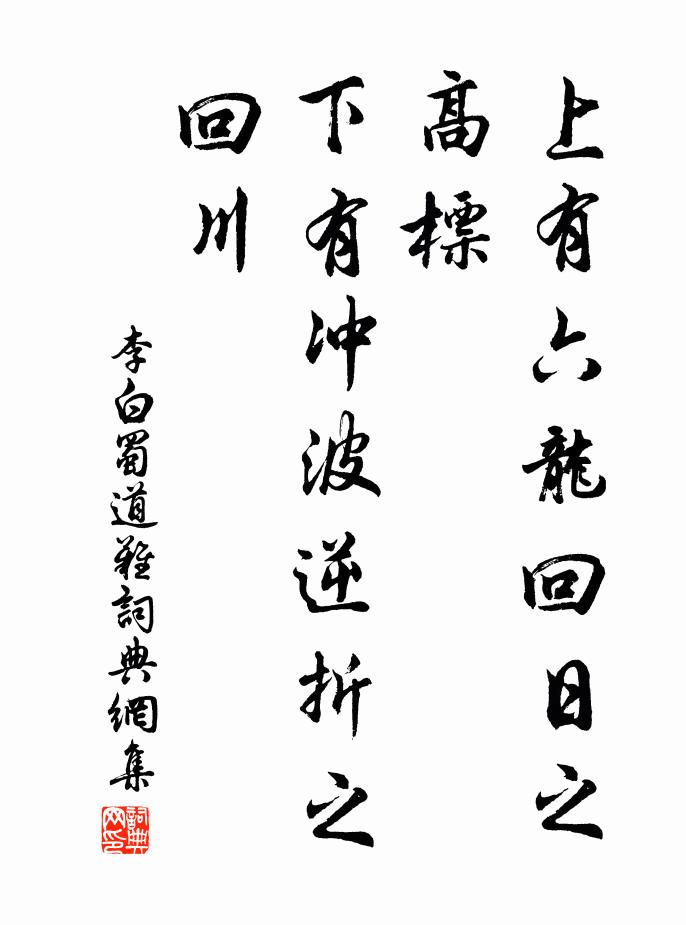 上有六龍回日之
高標
下有冲波逆折之
回川
李白蜀道難詞典網集
詞典网印